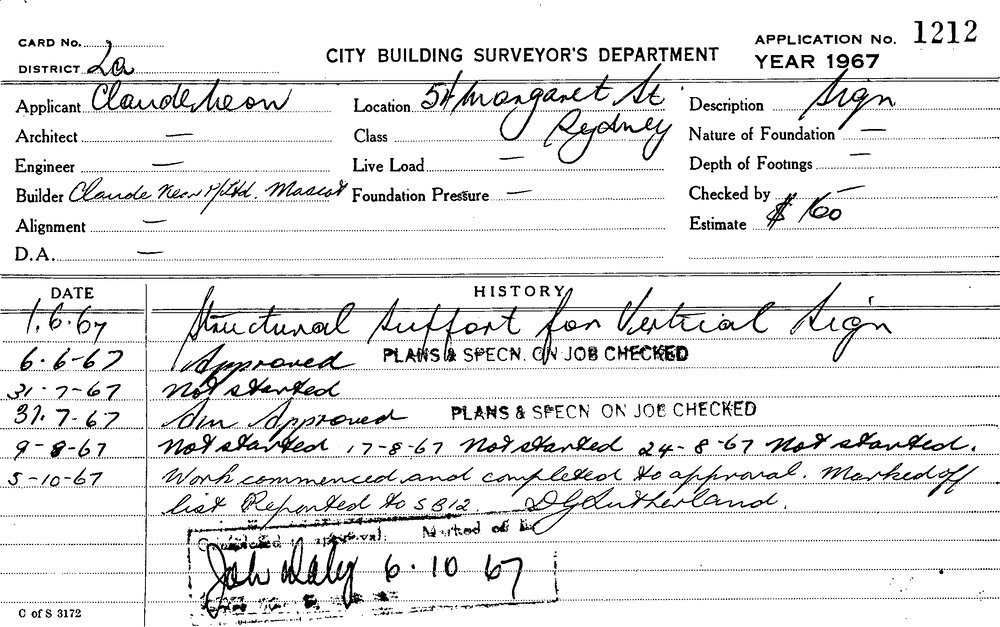 CARD No.
DISTRICT 2a
CITY BUILDING SURVEYOR'S DEPARTMENT
APPLICATION No. 1212
YEAR 1967
Applicant Claude Neon
Location 54 Margaret St Sydney
Description Sign
Architect —
Class
Nature of Foundation —
Engineer —
Live Load —
Depth of Footings —
Builder Claude Neon P/Ltd. Mascot
Foundation Pressure —
Checked by —
Alignment —
Estimate $ 160
D.A. —
DATE HISTORY
1.6.67 Structural Support for Vertical Sign
6.6-67 Approved PLANS & SPECN. ON JOB CHECKED
31-7-67 Not started
31.7-67 Am Approved PLANS & SPECN ON JOB CHECKED
9-8-67 Not started 17-8-67 Not started 24-8-67 Not started.
5-10-67 Work commenced and completed to approval. Marked off
list Reported to SB12. D G Sutherland.
Completed to approval. Marked off list
John Daly 6.10 67
C of S 3172